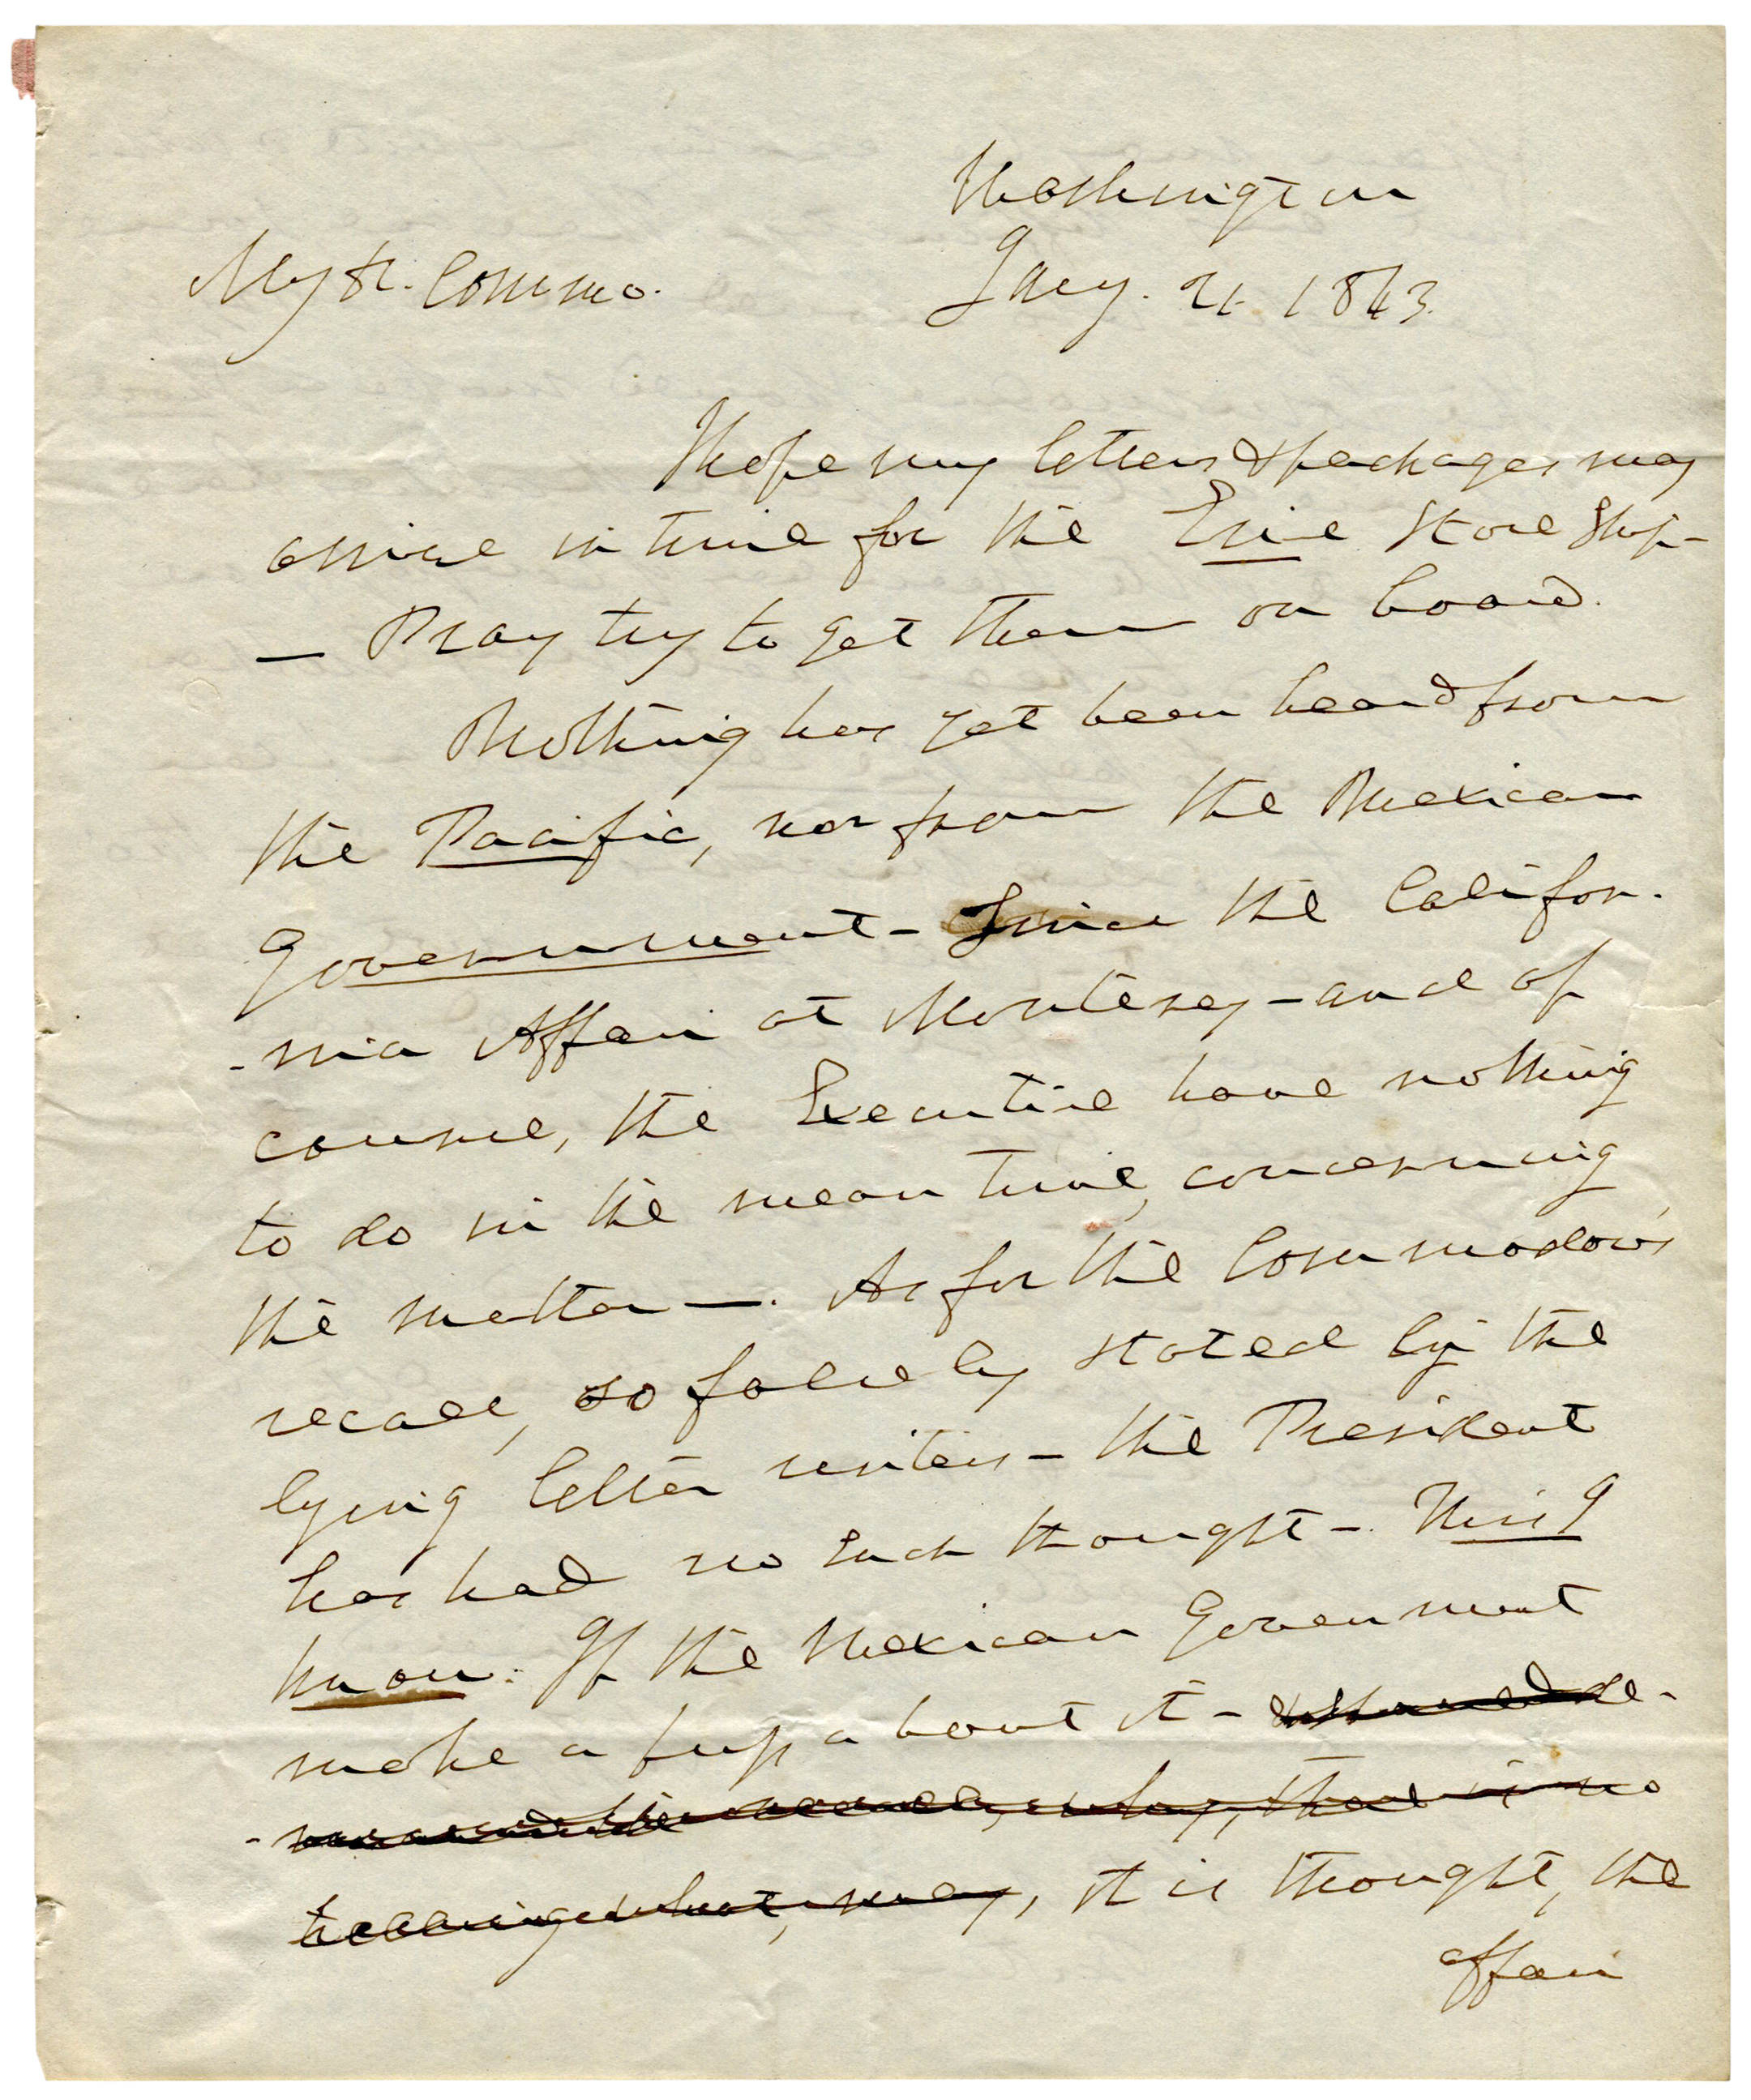 Washington
Jany. 21 1843.
My Dr. Commo.
I hope my letters & packages may
arrive in time for the Erie Store Ship-
— Pray try to get them on board.
Nothing has yet been heard from
the Pacific, nor from the Mexican
Government - Since the Califor-
-nia Affair at Monterey - and of
course, the Executive have nothing
to do in the mean time, concerning
the matter —. As for the Commodore's
recall, so falsely stated by the
lying letter writers - the President
has had no such thought -. This I
know. If the Mexican Goverment
make a fuss about it - de-
-mand the recall, why, there is no
telling what may, it is thought, the
affair